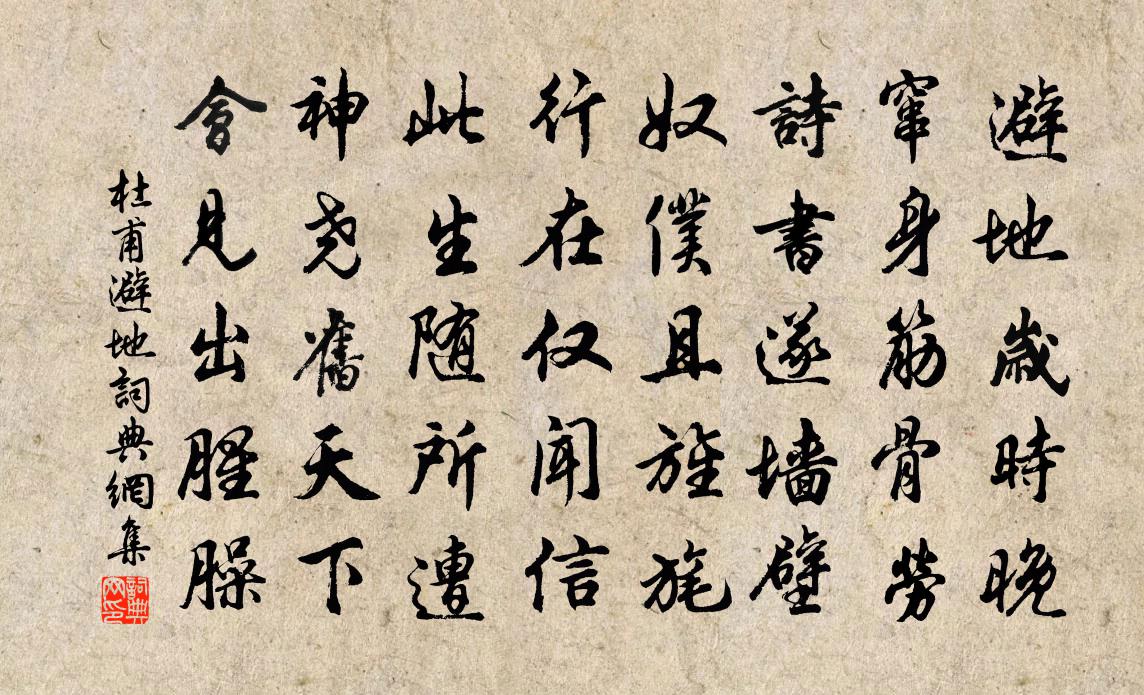 避地歲時晚
窜身筋骨勞
詩書遂墙壁
奴僕且旌旄
行在仅聞信
此生随所遭
神尧舊天下
會見出腥臊
杜甫避地詞典網集
詞典网印